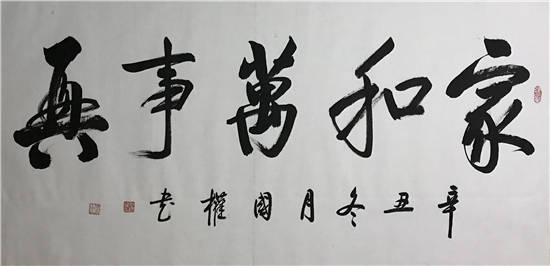 家和萬事興
辛丑冬月國權书